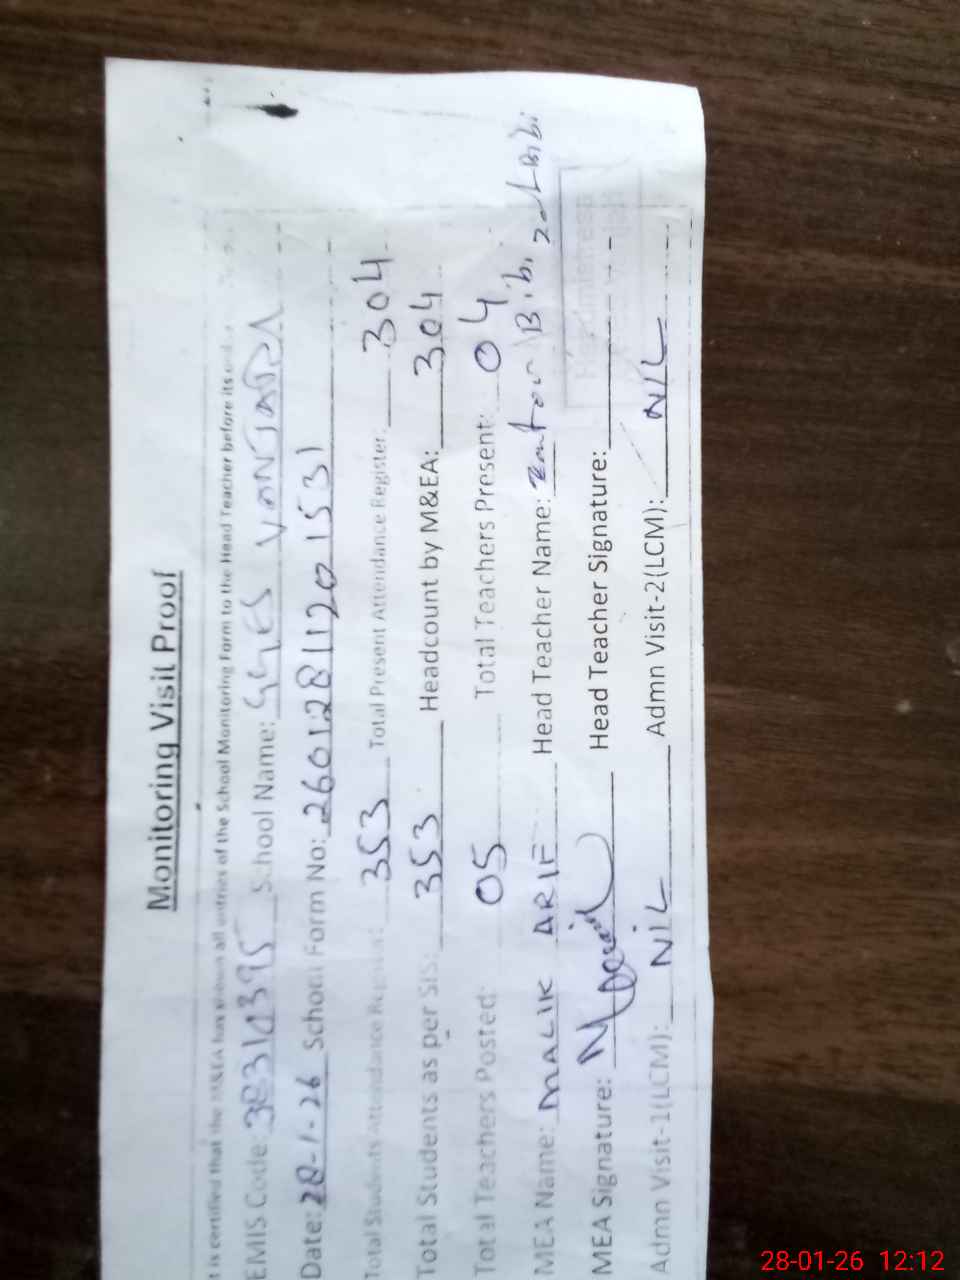 Monitoring Visit Proof
t is certified that the M&EA has shown all entries of the School Monitoring Form to the Head Teacher before its
EMIS Code: 38310395 School Name: GGES VANJARA
Date: 28-1-26 School Form No: 26012811201531
Total Students Attendance Register: 353 Total Present Attendance Register: 304
Total Students as per SIS: 353 Headcount by M&EA: 304
Total Teachers Posted: 05 Total Teachers Present: 04
MEA Name: MALIK ARIF Head Teacher Name: Bibi Bibi
MEA Signature: Head Teacher Signature:
Headmistress
Admn Visit-1(LCM): NiL Admn Visit-2(LCM): NIL
28-01-26 12:12